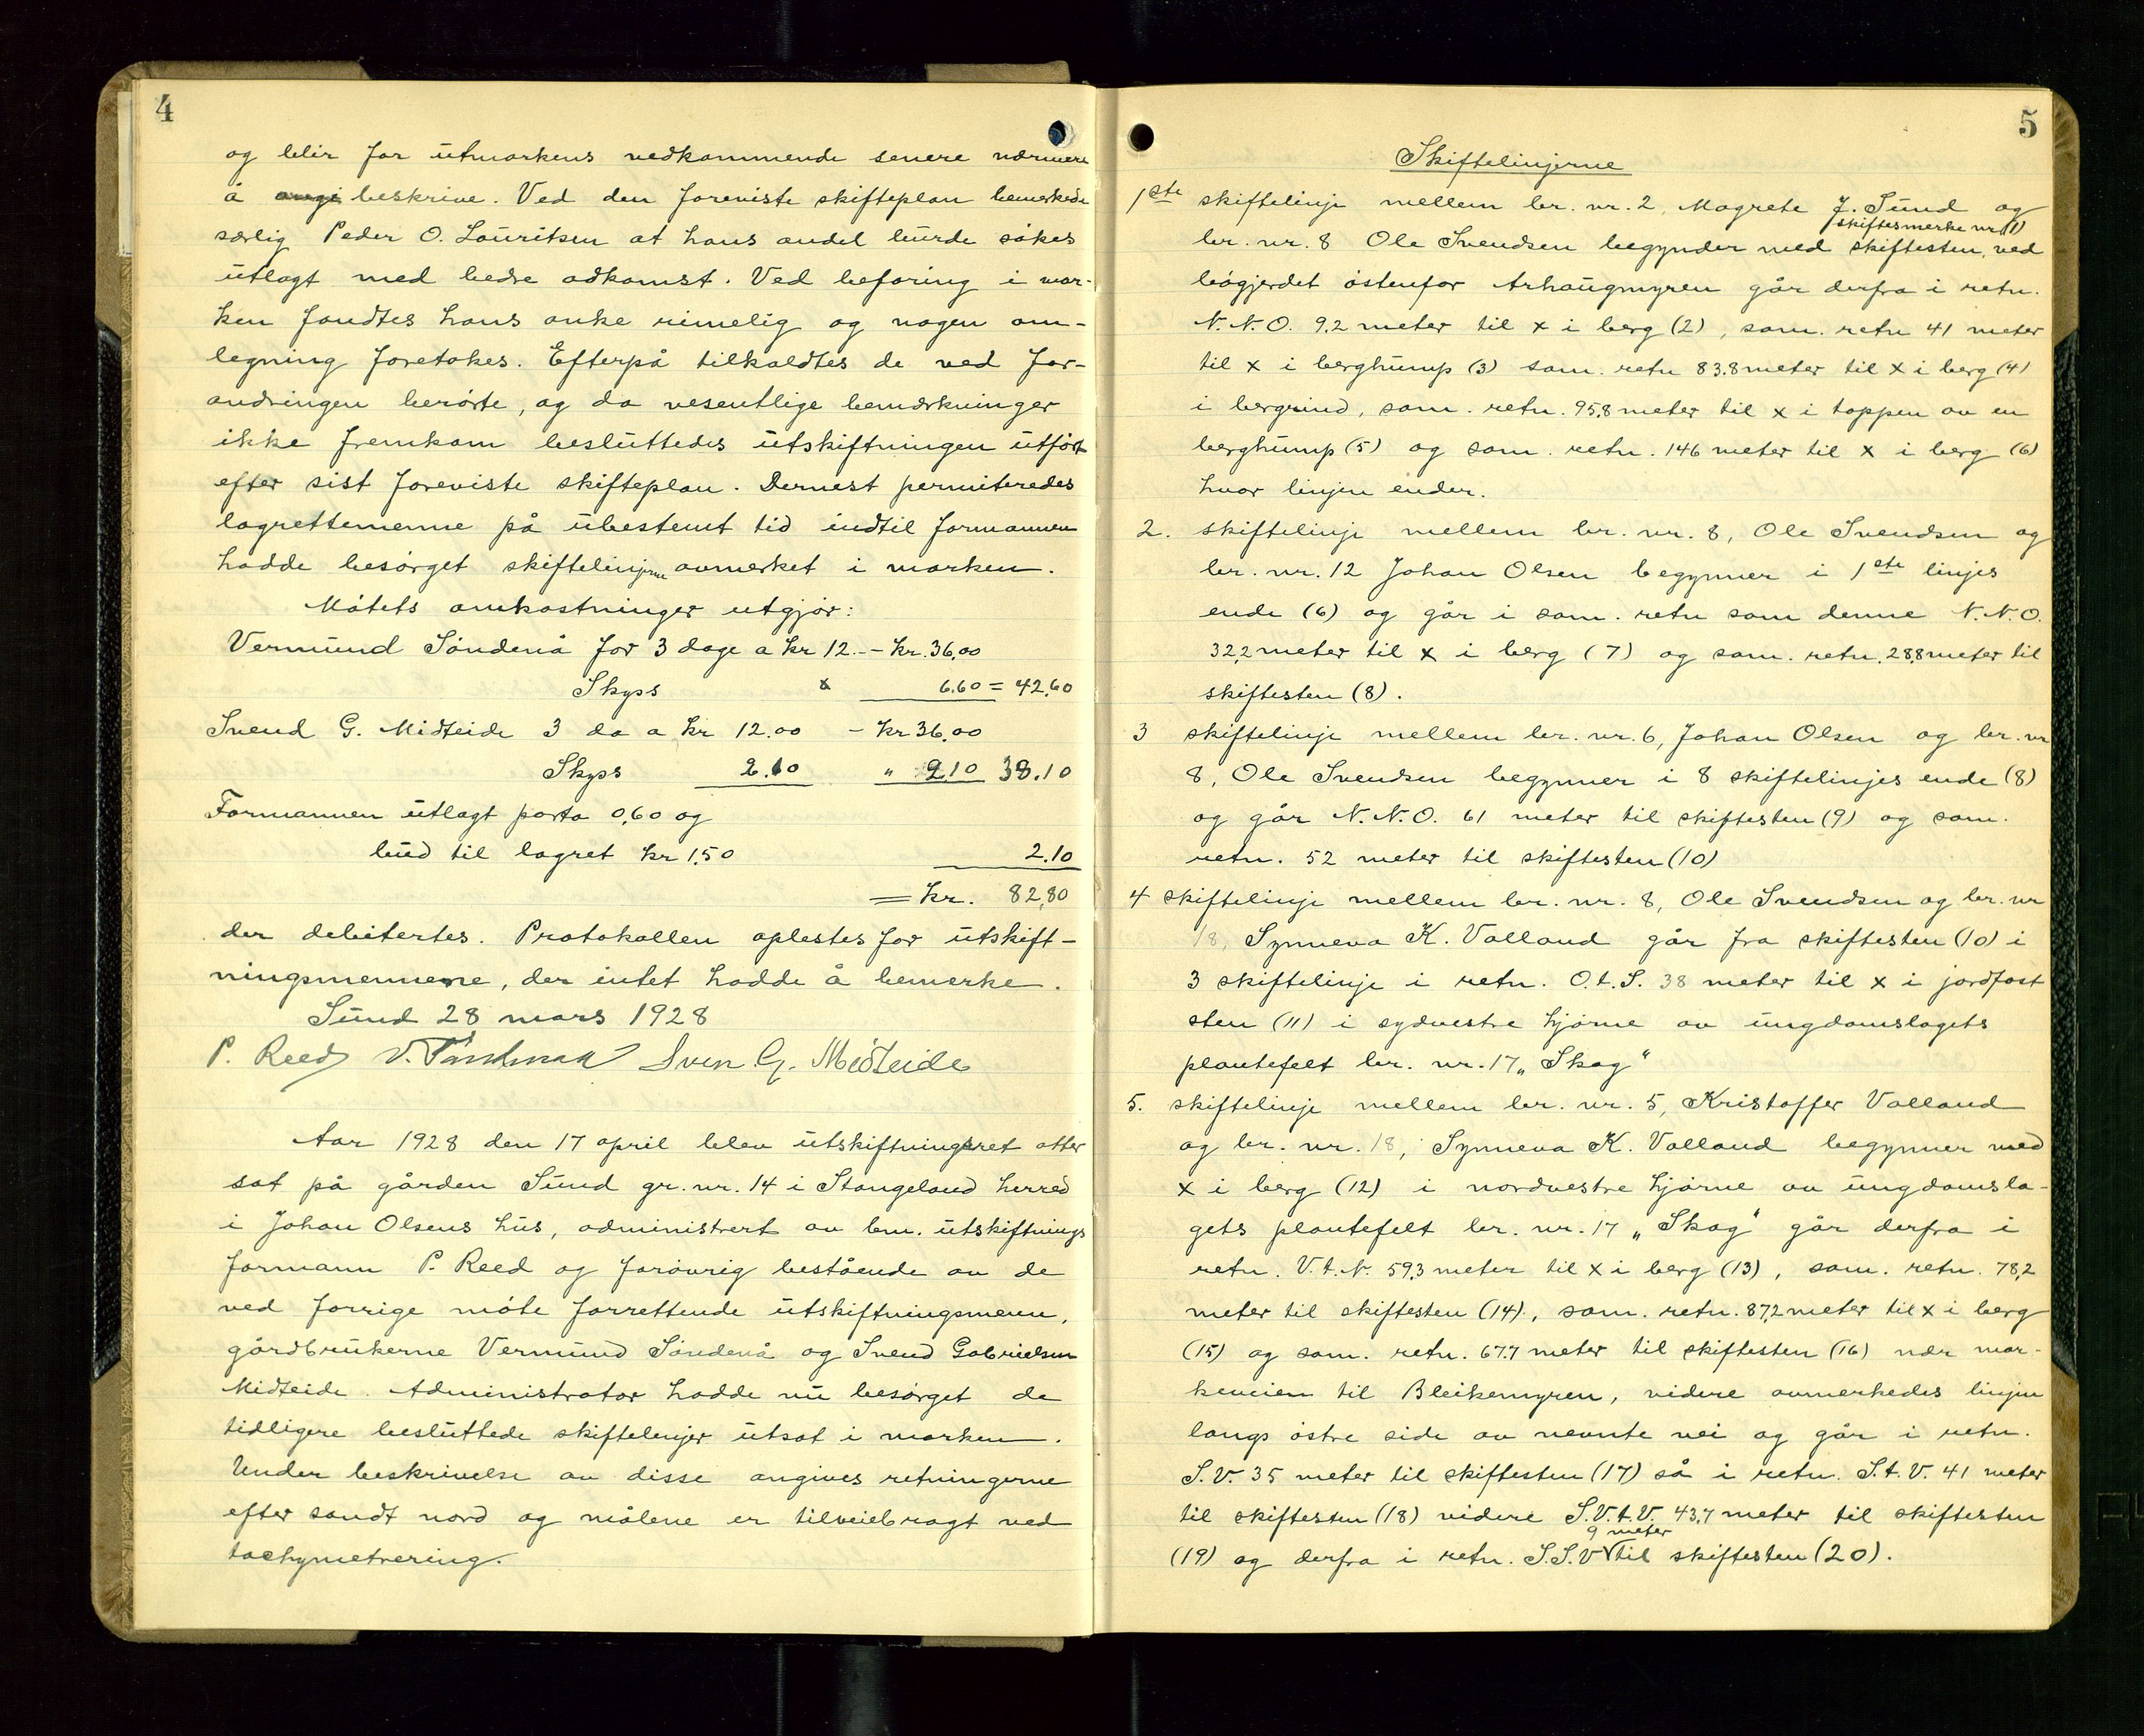 4
og blir for utmarkens vedkommende senere nærmere
å angi beskrive. Ved den foreviste skifteplan bemerkede
særlig Peder O. Lauritsen at hans andel burde søkes
utlagt med bedre adkomst. Ved befaring i mar-
ken fandtes hans anke rimelig og nogen om-
legning foretokes. Efterpå tilkaldtes de ved for-
andringen berørte, og da vesentlige bemærkninger
ikke fremkom besluttedes utskiftningen utført
efter sist foreviste skifteplan. Dernest permiteredes
lagrettemenne på ubestemt tid indtil formannen
hadde besørget skiftelinjerne avmerket i marken.
Møtets omkostninger utgjør:
Vermund Søndenå for 3 dage a kr 12.- - kr. 36,00
Skyss 6.60 = 42,60
Svend G. Midteide 3 da a kr 12.00 - kr 36,00
Skyss 2.10 " 2.10 38.10
Formannen utlagt porto 0,60 og
bud til lagret kr 1,50 2.10
= kr. 82,80
der debitertes. Protokollen oplestes for utskift-
ningsmennene, der intet hadde å bemerke.
Sund 28 mars 1928
P. Reed V. Søndenaa Sven G. Midteide
Aar 1928 den 17 april blev utskiftningsret atter
sat på gården Sund gr. nr. 14 i Stangeland herred
i Johan Olsens hus, administrert av bm. utskiftnings
formann P. Reed og forøvrig bestående av de
ved forrige møte forrettende utskiftningsmenn,
gårdbrukerne Vermund Søndenå og Svend Gabrielsen
Midteide. Administrator hadde nu besørget de
tidligere besluttede skiftelinjer utsat i marken.
Under beskrivelse av disse angives retningerne
efter sandt nord og målene er tilveiebragt ved
tachymetrering.
5
Skiftelinjerne
1ste skiftelinje mellem br. nr. 2, Magrete J. Sund og
skiftesmerke nr (1)
br. nr. 8 Ole Svendsen begynder med skiftesten, ved
bøgjerdet østenfor Arhaugmyren går derfra i retn.
N.N.O. 9,2 meter til x i berg (2), sam. retn 41 meter
til x i berghump (3) sam. retn 83.8 meter til x i berg (4)
i bergrind, sam. retn. 95,8 meter til x i toppen av en
berghump (5) og sam. retn. 146 meter til x i berg (6)
hvor linjen ender.
2. skiftelinje mellem br. nr. 8, Ole Svendsen og
br. nr. 12 Johan Olsen begynner i 1ste linjes
ende (6) og går i sam. retn som denne N.N.O.
32,2 meter til x i berg (7) og sam. retn. 28,8 meter til
skiftesten (8).
3 skiftelinje mellem br. nr. 6, Johan Olsen og br. nr
8, Ole Svendsen begynner i 8 skiftelinjes ende (8)
og går N.N.O. 61 meter til skiftesten (9) og sam.
retn. 52 meter til skiftesten (10)
4 skiftelinje mellem br. nr. 8, Ole Svendsen og br. nr
18, Synneva K. Valland går fra skiftesten (10) i
3 skiftelinje i retn. O.t.S. 38 meter til x i jordfast
sten (11) i sydvestre hjørne av ungdomslagets
plantefelt br. nr. 17 „Skog"
5. skiftelinje mellem br. nr. 5, Kristoffer Valland
og br. nr. 18, Synneva K. Valland begynner med
x i berg (12) i nordvestre hjørne av ungdomsla-
gets plantefelt br. nr. 17 „Skog" går derfra i
retn. V.t.N. 59,3 meter til x i berg (13), sam. retn. 78,2
meter til skiftesten (14), sam. retn. 87,2 meter til x i berg
(15) og sam. retn. 67.7 meter til skiftesten (16) nær mar-
keveien til Bleikemyren, videre avmerkedes linjen
langs østre side av nevnte vei og går i retn.
S.V. 35 meter til skiftesten (17) så i retn. S.t.V. 41 meter
til skiftesten (18) videre S.V.t.V. 43,7 meter til skiftesten
9 meter
(19) og derfra i retn. S.S.V til skiftesten (20).